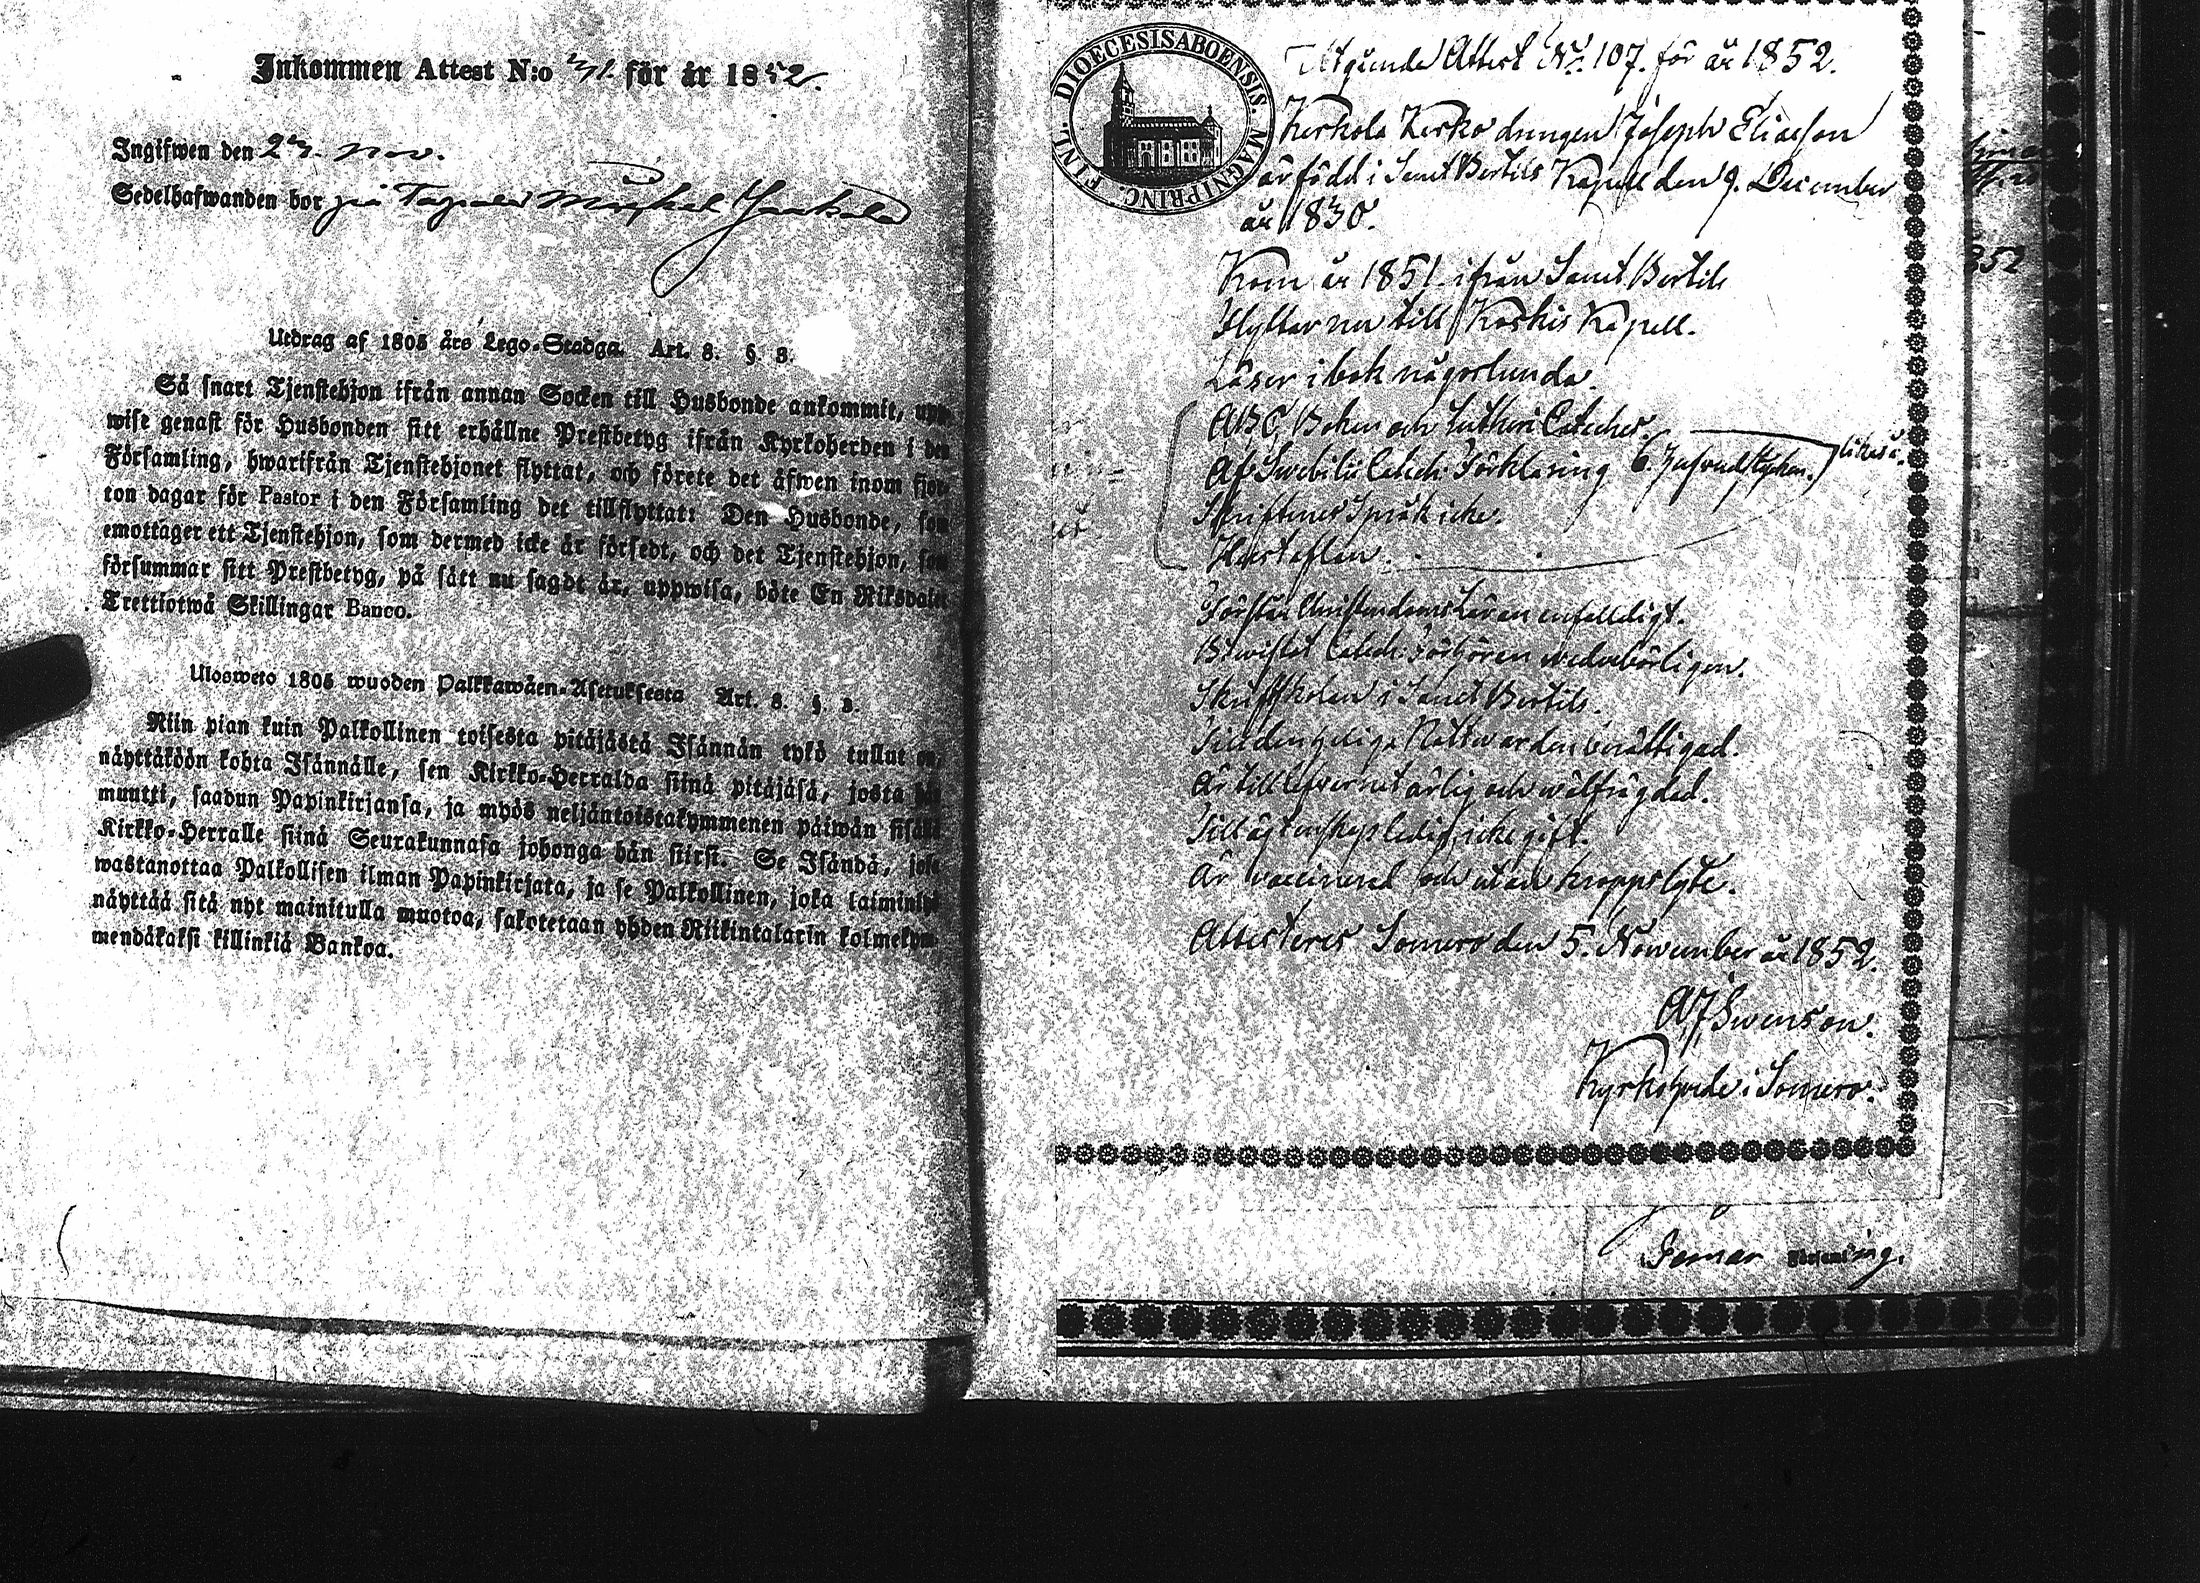 Inkommen Attest N:o för år 1852.
Ingifwen den nov.
Sedelhafwanden bor
Utdrag af 1805 års Lego-Stadga. Art. 8. §. 3.
Så snart Tjenstehjon ifrån annan Socken till Husbonde ankommit, upp-
wise genast för Husbonden sitt erhållne Prestbetyg ifrån Kyrkoherden i den
Församling, hwarifrån Tjenstehjonet flyttat, och förete det äfwen inom fjor-
ton dagar för Pastor i den Församling det tillflyttat: Den Husbonde, som
emottager ett Tjenstehjon, som dermed icke är försedt, och det Tjenstehjon, som
försummar sitt Prestbetyg, på sätt nu sagdt är, uppwisa, böte En Riksdaler
Trettiotwå Skillingar Banco.
Ulosweto 1805 wuoden Palkkawäen-Asetuksesta Art. 8. §. 3.
Niin pian kuin Palkollinen toisesta pitäjästä Isännän tykö tullut on,
näyttäköön kohta Isännälle, sen Kirkko-Herralda siinä pitäjäsä, josta hän
muutti, saadun Papinkirjansa, ja myös neljäntoistakymmenen päiwän sisällä
Kirkko-Herralle siinä Seurakunnasa johonga hän siirsi. Se Isändä, joka
wastanottaa Palkollisen ilman Papinkirjata, ja se Palkollinen, joka laiminlyö
näyttää sitä nyt mainitulla muotoa, sakotetaan yhden Riikintalarin kolmekym-
mendäkaksi killinkiä Bankoa.
DIOECESIS ABOENSIS. MAGNI PRINC. FINL.
Utgående Attest No. 107. för år 1852.
Kerkola Kerko drengen Joseph Eliaeson
är född i Sanct Bertils Kapell den 9. December
år 1830.
Kom år 1851. ifrån Sanct Bertils
Flyttar nu till Koskis Kapell.
Läser i bok någorlunda.
ABC, Boken och Lutheri Cateches.
Af Swebilii Catech: Förklaring 6. Hufvudstycken.
Skriftenes Språk icke.
Hustaflan.
Förstår Christendoms Läran enfaldigt.
Bewistat Catech: Förhören wederbörligen.
Skriftskolan i Sanct Bertils.
Till den heliga Nattwarden berättigad.
Är till lefwernet ärlig och wälfrägdad.
Till ägtenskap ledig, icke gift.
Är vaccinerad och utan kroppslyte.
Attesteres Somero den 5. November år 1852.
A J Swenson.
Kyrkoherde i Somero.
Församling.